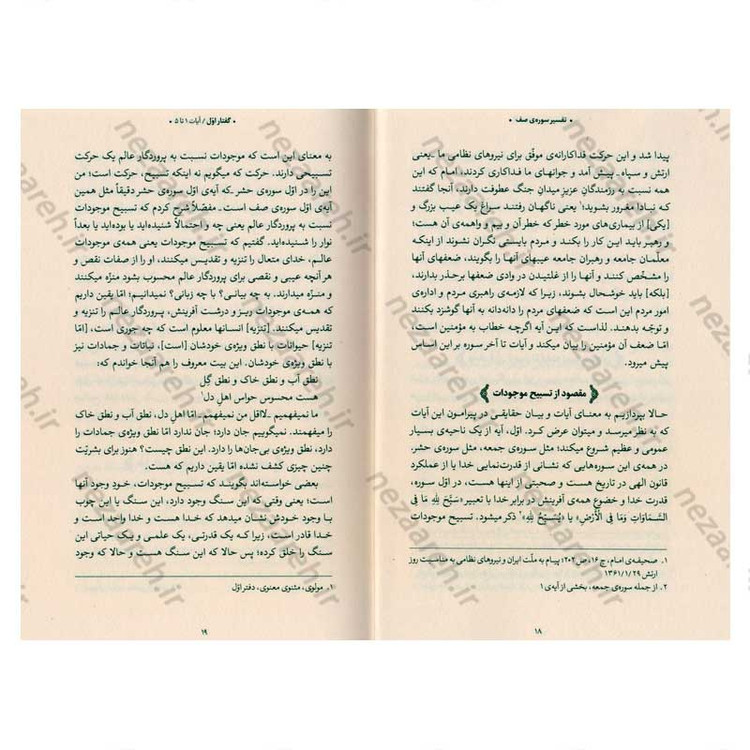 • تفسیر سوره‌ی صف •
پیدا شد و این حرکت فداکارانه‌ی موفّق برای نیروهای نظامی ما ـ یعنی
ارتش و سپاه ـ پیش آمد و جوانهای ما فداکاری کردند، امام که این
همه نسبت به رزمندگان عزیز میدان جنگ عطوفت دارند، آنجا گفتند
که نبادا مغرور بشوید؛۱ یعنی ناگهان رفتند سراغ یک عیب بزرگ و
[یکی] از بیماری‌های مورد خطر که خطر آن و بیم و واهمه‌ی آن هست؛
و رهبر باید این کار را بکند و مردم بایستی نگران نشوند از اینکه
معلّمان جامعه و رهبران جامعه عیبهای آنها را بگویند، ضعفهای آنها
را مشخّص کنند و آنها را از غلتیدن در وادی ضعفها برحذر بدارند،
[بلکه] باید خوشحال بشوند، زیرا که لازمه‌ی راهبری مردم و اداره‌ی
امور مردم این است که ضعفهای مردم را دانه‌دانه به آنها گوشزد بکنند
و توجّه بدهند. لذاست که این آیه اگرچه خطاب به مؤمنین است،
امّا ضعف آن مؤمنین را بیان میکند و آیات تا آخر سوره بر این اساس
پیش میرود.
مقصود از تسبیح موجودات
حالا بپردازیم به معنای آیات و بیان حقایقی در پیرامون این آیات
که به نظر میرسد و میتوان عرض کرد. اوّل، آیه از یک ناحیه‌ی بسیار
عمومی و عظیم شروع میکند؛ مثل سوره‌ی جمعه، مثل سوره‌ی حشر.
در همه‌ی این سوره‌هایی که نشانی از قدرت‌نمایی خدا یا از عملکرد
قانون الهی در تاریخ هست و صحبتی از اینها هست، در اوّل سوره،
قدرت خدا و خضوع همه‌ی آفرینش در برابر خدا با تعبیر «سَبَّحَ لِلهِ مَا فِی
السَّمَاوَاتِ وَمَا فِی الْأَرْضِ» یا «یُسَبِّحُ لِلهِ»۲ ذکر میشود. تسبیح موجودات
۱. صحیفه‌ی امام، ج ۱۶، ص ۲۰۲؛ پیام به ملّت ایران و نیروهای نظامی به مناسبت روز
ارتش ۱۳۶۱/۱/۲۹
۲. از جمله سوره‌ی جمعه، بخشی از آیه‌ی ۱
۱۸
• گفتار اوّل / آیات ۱ تا ۵ •
به معنای این است که موجودات نسبت به پروردگار عالم یک حرکت
تسبیحی دارند. حرکت که میگویم نه اینکه تسبیح، حرکت است؛ من
این را در اوّل سوره‌ی حشر ـ که آیه‌ی اوّل سوره‌ی حشر دقیقاً مثل همین
آیه‌ی اوّل سوره‌ی صف است ـ مفصّلاً شرح کردم که تسبیح موجودات
نسبت به پروردگار عالم یعنی چه و احتمالاً شنیده‌اید یا بوده‌اید یا بعداً
نوار را شنیده‌اید. گفتیم که تسبیح موجودات یعنی همه‌ی موجودات
عالم، خدای متعال را تنزیه و تقدیس میکنند، او را از صفات نقص و
هر آنچه عیبی و نقصی برای پروردگار عالم محسوب بشود منزّه میکنند
و منزّه میدارند. به چه بیانی؟ با چه زبانی؟ نمیدانیم؛ امّا یقین داریم
که همه‌ی موجودات ریز و درشت آفرینش، پروردگار عالم را تنزیه و
تقدیس میکنند. [تنزیه] انسانها معلوم است که چه جوری است، [امّا
تنزیه] حیوانات با نطق ویژه‌ی خودشان [است]، نباتات و جمادات نیز
با نطق ویژه‌ی خودشان. این بیت معروف را هم آنجا خواندم که:
نطق آب و نطق خاک و نطق گِل
هست محسوس حواس اهل دل۱
ما نمیفهمیم ـ لااقل من نمیفهمم ـ امّا اهل دل، نطق آب، نطق خاک
را میفهمند. نمیگوییم جان دارد؛ جان ندارد امّا نطق ویژه‌ی جمادات را
دارد، نطق ویژه‌ی بی‌جان‌ها را دارد. این نطق چیست؟ هنوز برای بشریّت
چنین چیزی کشف نشده امّا یقین داریم که هست.
بعضی خواسته‌اند بگویند که تسبیح موجودات، خود وجود آنها
است؛ یعنی وقتی که این سنگ وجود دارد، این سنگ یا این چوب
با وجود خودش نشان میدهد که خدا هست و خدا واحد است و
خدا قادر است، زیرا که یک قدرتی، یک علمی و یک حیاتی این
سنگ را خلق کرده؛ پس حالا که این سنگ هست و حالا که وجود
۱. مولوی، مثنوی معنوی، دفتر اوّل
۱۹
nezaareh.ir